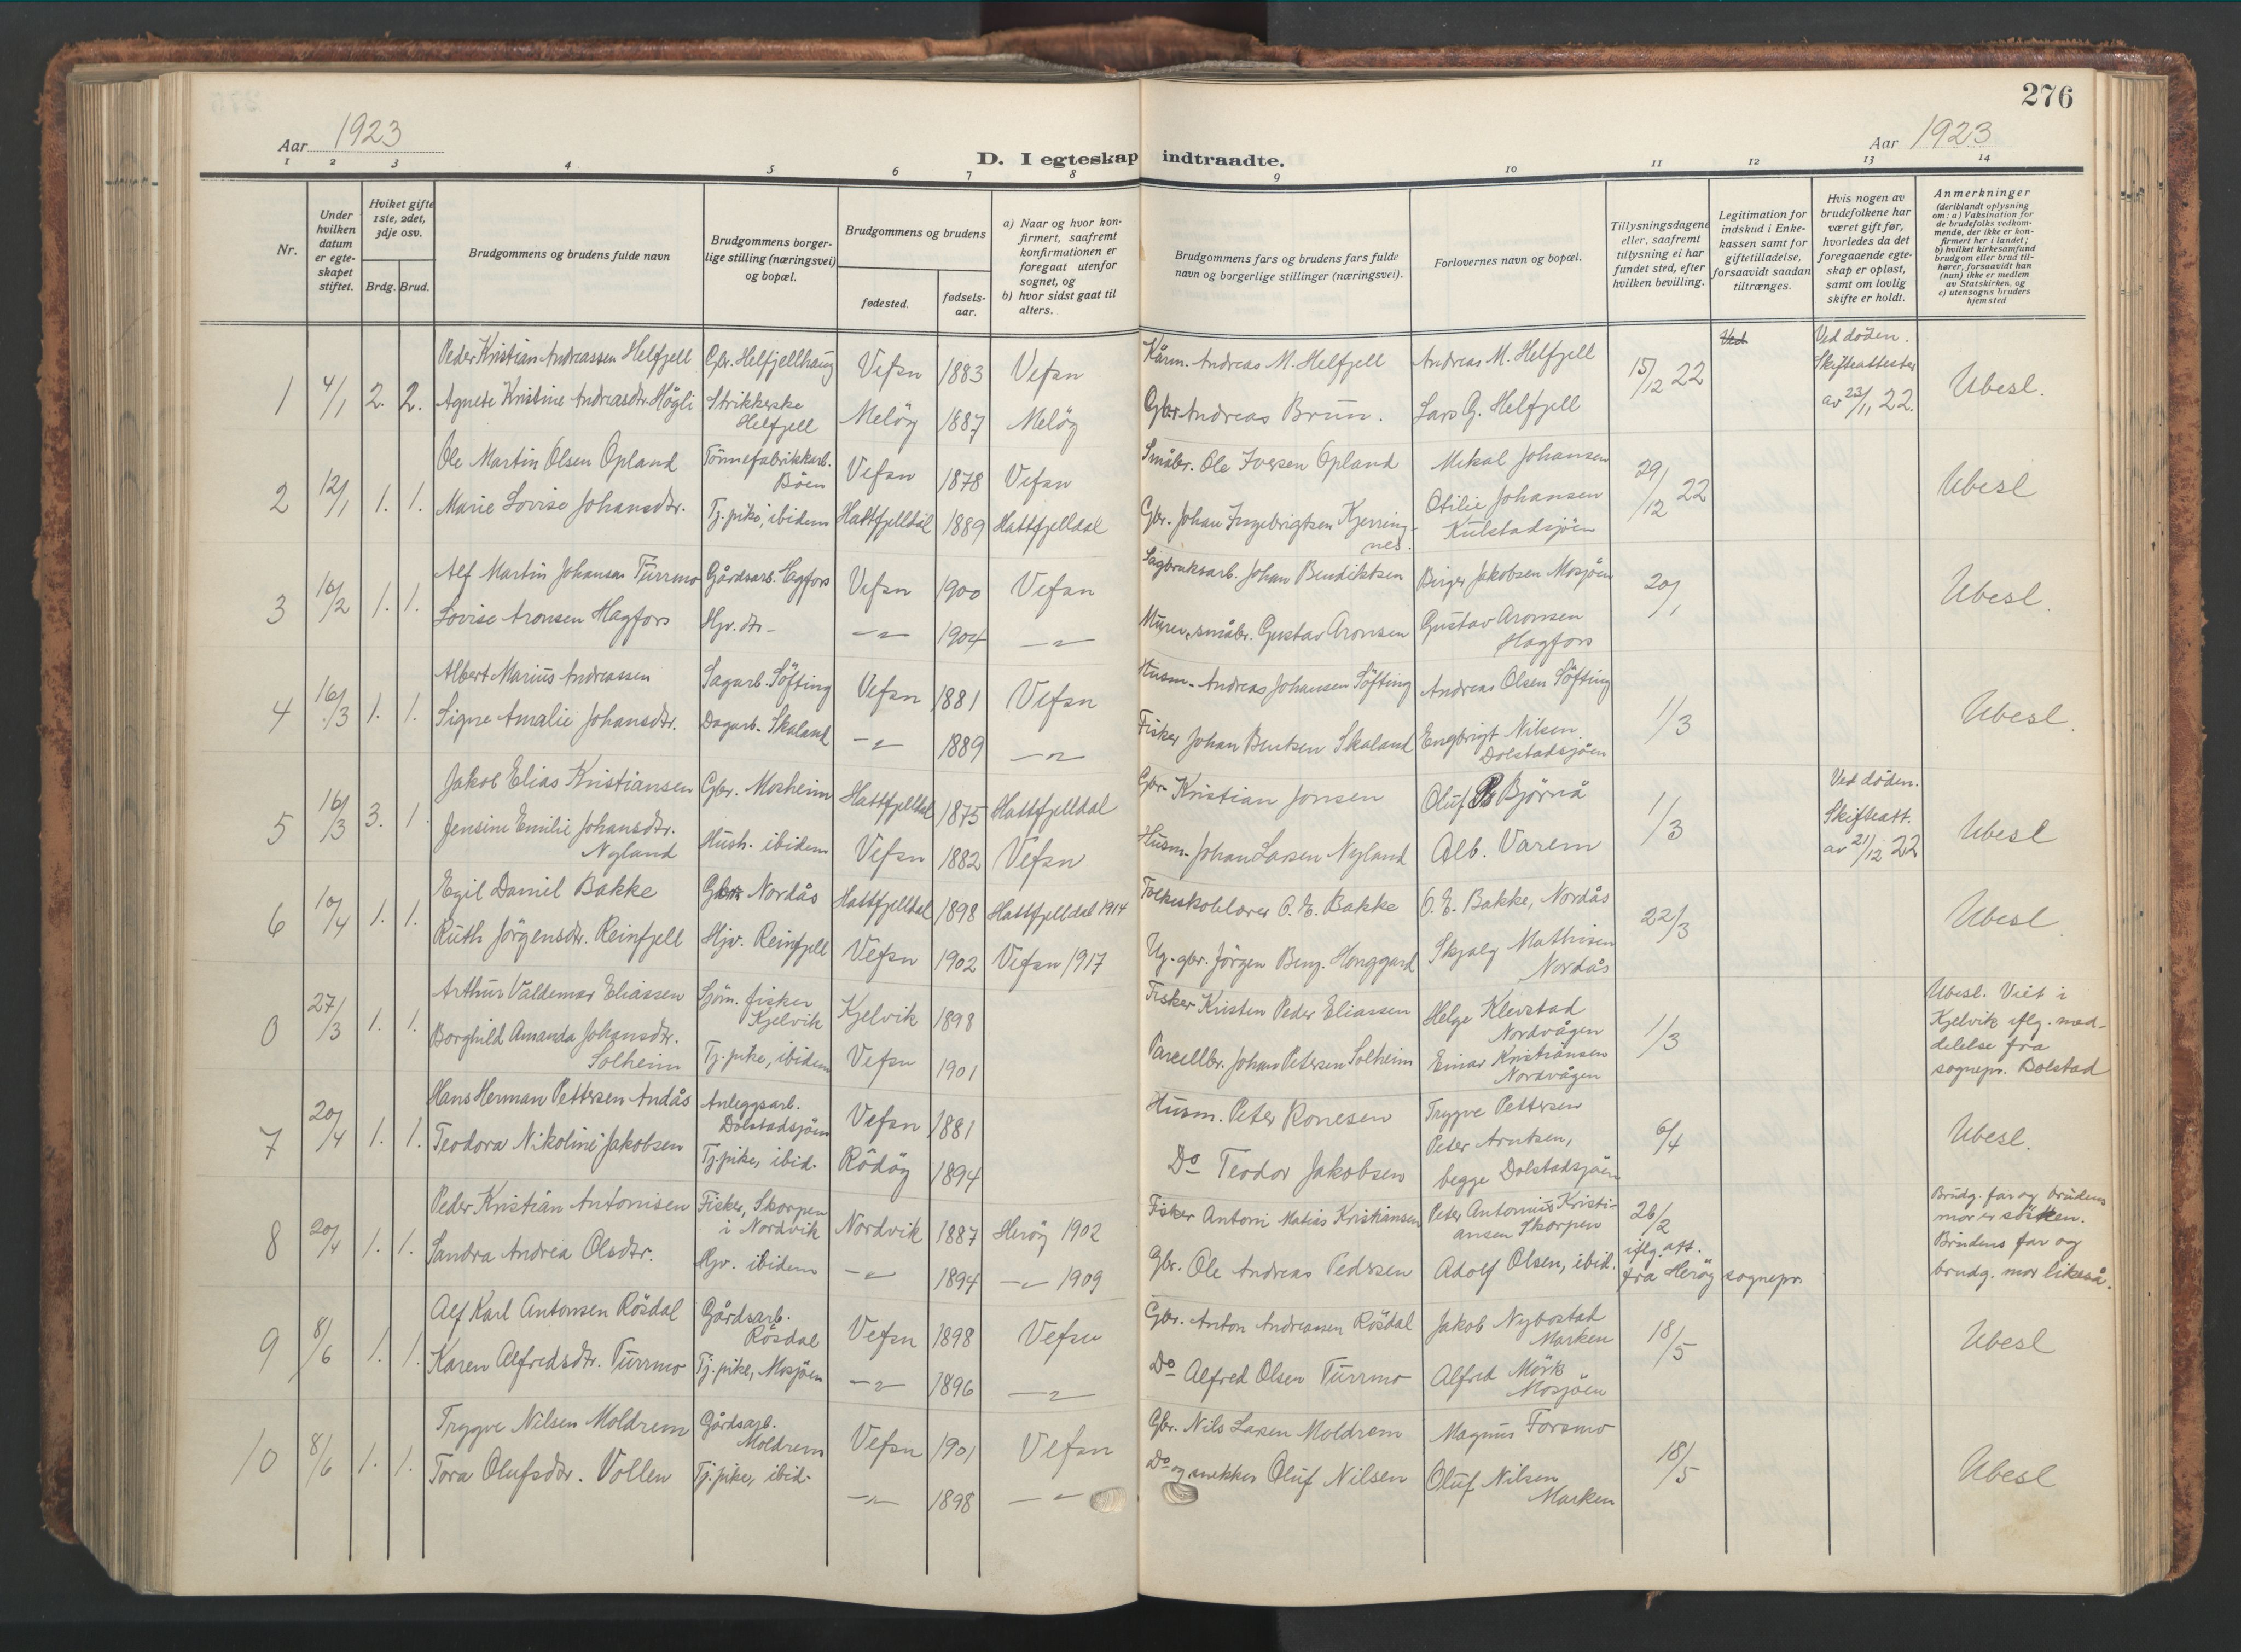 276
Aar 1923
Aar 1923
D. I egteskap indtraadte.
1 2 3 4 5 6 7 8 9 10 11 12 13 14
Nr.
Under hvilken datum er egteskapet stiftet.
Hviket gifte 1ste, 2det, 3dje osv.
Brdg. Brud.
Brudgommens og brudens fulde navn
Brudgommens borgerlige stilling (næringsvei) og bopæl.
Brudgommens og brudens
fødested.
fødselsaar.
a) Naar og hvor konfirmert, saafremt konfirmationen er foregaat utenfor sognet, og
b) hvor sidst gaat til alters.
Brudgommens fars og brudens fars fulde navn og borgerlige stillinger (næringsvei).
Forlovernes navn og bopæl.
Tillysningsdagene eller, saafremt tillysning ei har fundet sted, efter hvilken bevilling.
Legitimation for indskud i Enkekassen samt for giftetilladelse, forsaavidt saadan tiltrænges.
Hvis nogen av brudefolkene har været gift før, hvorledes da det foregaaende egteskap er opløst, samt om lovlig skifte er holdt.
Anmerkninger (deriblandt oplysning om: a) Vaksination for de brudefolks vedkommende, der ikke er konfirmert her i landet; b) hvilket kirkesamfund brudgom eller brud tilhører, forsaavidt han (hun) ikke er medlem av Statskirken, og c) utensogns bruders hjemsted
1 4/1 2. 2.
Peder Kristian Andreassen Helfjell Gbr. Helfjellhaug Vefsn 1883 Vefsn Kårm. Andreas M. Helfjell Andreas M. Helfjell 15/12 22 Ved Ved døden. Skifteattester av 23/11 22. Ubesl.
Agnete Kristine Andreasdtr. Högli Strikkerske Helfjell Melöy 1887 Melöy Gbr. Andreas Brun. Lars G. Helfjell
2 12/1 1. 1.
Ole Martin Olsen Opland Tönnefabrikkarb. Böen Vefsn 1878 Vefsn Småbr. Ole Iversen Opland Mikal Johansen 29/12 22 Ubesl
Marie Lovise Johansdtr. Tj. pike, ibidem Hattfjelldal 1889 Hattfjelldal Gbr. Johan Ingebrigtsen Kjerringnes. Otilie Johansen Kulstadsjöen
3 16/2 1. 1.
Alf Martin Johansen Turrmo Gårdsarb. Hagfors Vefsn 1900 Vefsn Sagbruksarb. Johan Bendiktsen Birger Jakobsen Mosjöen 20/1 Ubesl.
Lovise Aronsen Hagfors Hjv. dtr. -"- 1904 -"- Murer, småbr. Gustav Aronsen Gustav Aronsen Hagfors
4 16/3 1. 1.
Albert Marius Andreassen Sagarb. Söfting Vefsn 1881 Vefsn Husm. Andreas Johansen Söfting Andreas Olsen Söfting 1/3 Ubesl.
Signe Amalie Johansdtr. Dagarb. Skaland -"- 1889 -"- Fisker Johan Bentsen Skaland Engbrigt Nilsen Dolstadsjöen
5 16/3 3. 1.
Jakob Elias Kristiansen Gbr. Mosheim Hattfjelldal 1875 Hattfjelldal Gbr. Kristian Jonsen Oluf Bjørnå 1/3 Ved døden. Skifteatt. av 21/12 22 Ubesl
Jensine Emilie Johansdtr. Nyland Hush. ibidem Vefsn 1882 Vefsn Husm. Johan Larsen Nyland Alb. Varem
6 10/4 1. 1.
Egil Daniel Bakke Nordås Hattfjelldal 1898 Hattfjelldal 1914 Folkeskolelærer O. E. Bakke O. E. Bakke, Nordås 22/3 Ubesl.
Ruth Jörgensdtr. Reinfjell Hjv. Reinfjell Vefsn 1902 Vefsn 1917 Ug. gbr. Jörgen Beng. Honggard Skjalg Mathisen Nordås
0 27/3 1. 1.
Arthur Valdemar Eliassen Sjöm. fisker Kjelvik Kjelvik 1898 Fisker Kristen Peder Eliassen Helge Klevstad Nordvågen 1/3 Ubesl. Viet i Kjelvik iflg. meddelelse fra sognepr. Bolstad
Borghild Amanda Johansdtr. Solheim Tj. pike, ibidem Vefsn 1901 Parcellbr. Johan Petersen Solheim Einar Kristiansen Nordvågen
7 20/4 1. 1.
Hans Herman Pettersen Andås Anleggsarb. Dolstadsjöen Vefsn 1881 Husm. Peter Ronesen Trygve Pettersen 6/4 Ubesl.
Teodora Nikoline Jakobsen Tj. pike, ibid. Rödöy 1894 Do Teodor Jakobsen Peder Arntsen, begge Dolstadsjöen
8 20/4 1. 1.
Peder Kristian Antonisen Fisker, Skorpen i Nordvik Nordvik 1887 Heröy 1902 Fisker Antoni Matias Kristiansen Peter Antonius Kristiansen Skorpen 26/2 iflg. att. fra Heröy sognepr. Brudg. far og brudens mor er söskken. Brudens far og brudg. mor likeså.
Sandra Andrea Olsdtr. Hjv. ibidem -"- 1894 -"- 1909 Gbr. Ole Andreas Pedersen Adolf Olsen, ibid.
9 8/6 1. 1.
Alf Karl Antonsen Rösdal Gårdsarb. Rösdal Vefsn 1898 Vefsn Gbr. Anton Andreassen Rösdal Jakob Nybostad Marken 18/5 Ubesl
Karen Alfredsdtr. Turrmo Tj. pike, Mosjöen -"- 1896 -"- Do Alfred Olsen Turrmo Alfred Mörk Mosjöen
10 8/6 1. 1.
Trygve Nilsen Moldrem Gårdsarb. Moldrem Vefsn 1901 Vefsn Gbr. Nils Larsen Moldrem Magnus Forsmo 18/5 Ubesl
Tora Olufsdtr. Vollen Tj. pike, ibid. -"- 1898 -"- Do og snekker Oluf Nilsen Oluf Nilsen Marken